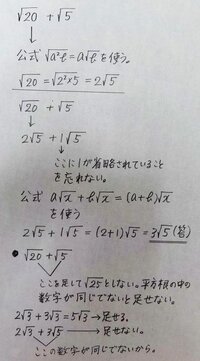 √20 + √5
↓
公式 √a²b = a√b を使う。
√20 = √2²×5 = 2√5
√20 + √5
↓ ↓
2√5 + 1√5
ここに1が省略されていること
を忘れない。
公式 a√x + b√x = (a+b)√x
を使う
2√5 + 1√5 = (2+1)√5 = 3√5 (答)
● √20 + √5
ここを足して√25としない。平方根の中の
数字が同じでないと足せない。
2√3 + 3√3 = 5√3 → 足せる。
2√3 + 3√5 → 足せない。
ここの数字が同じでないから。